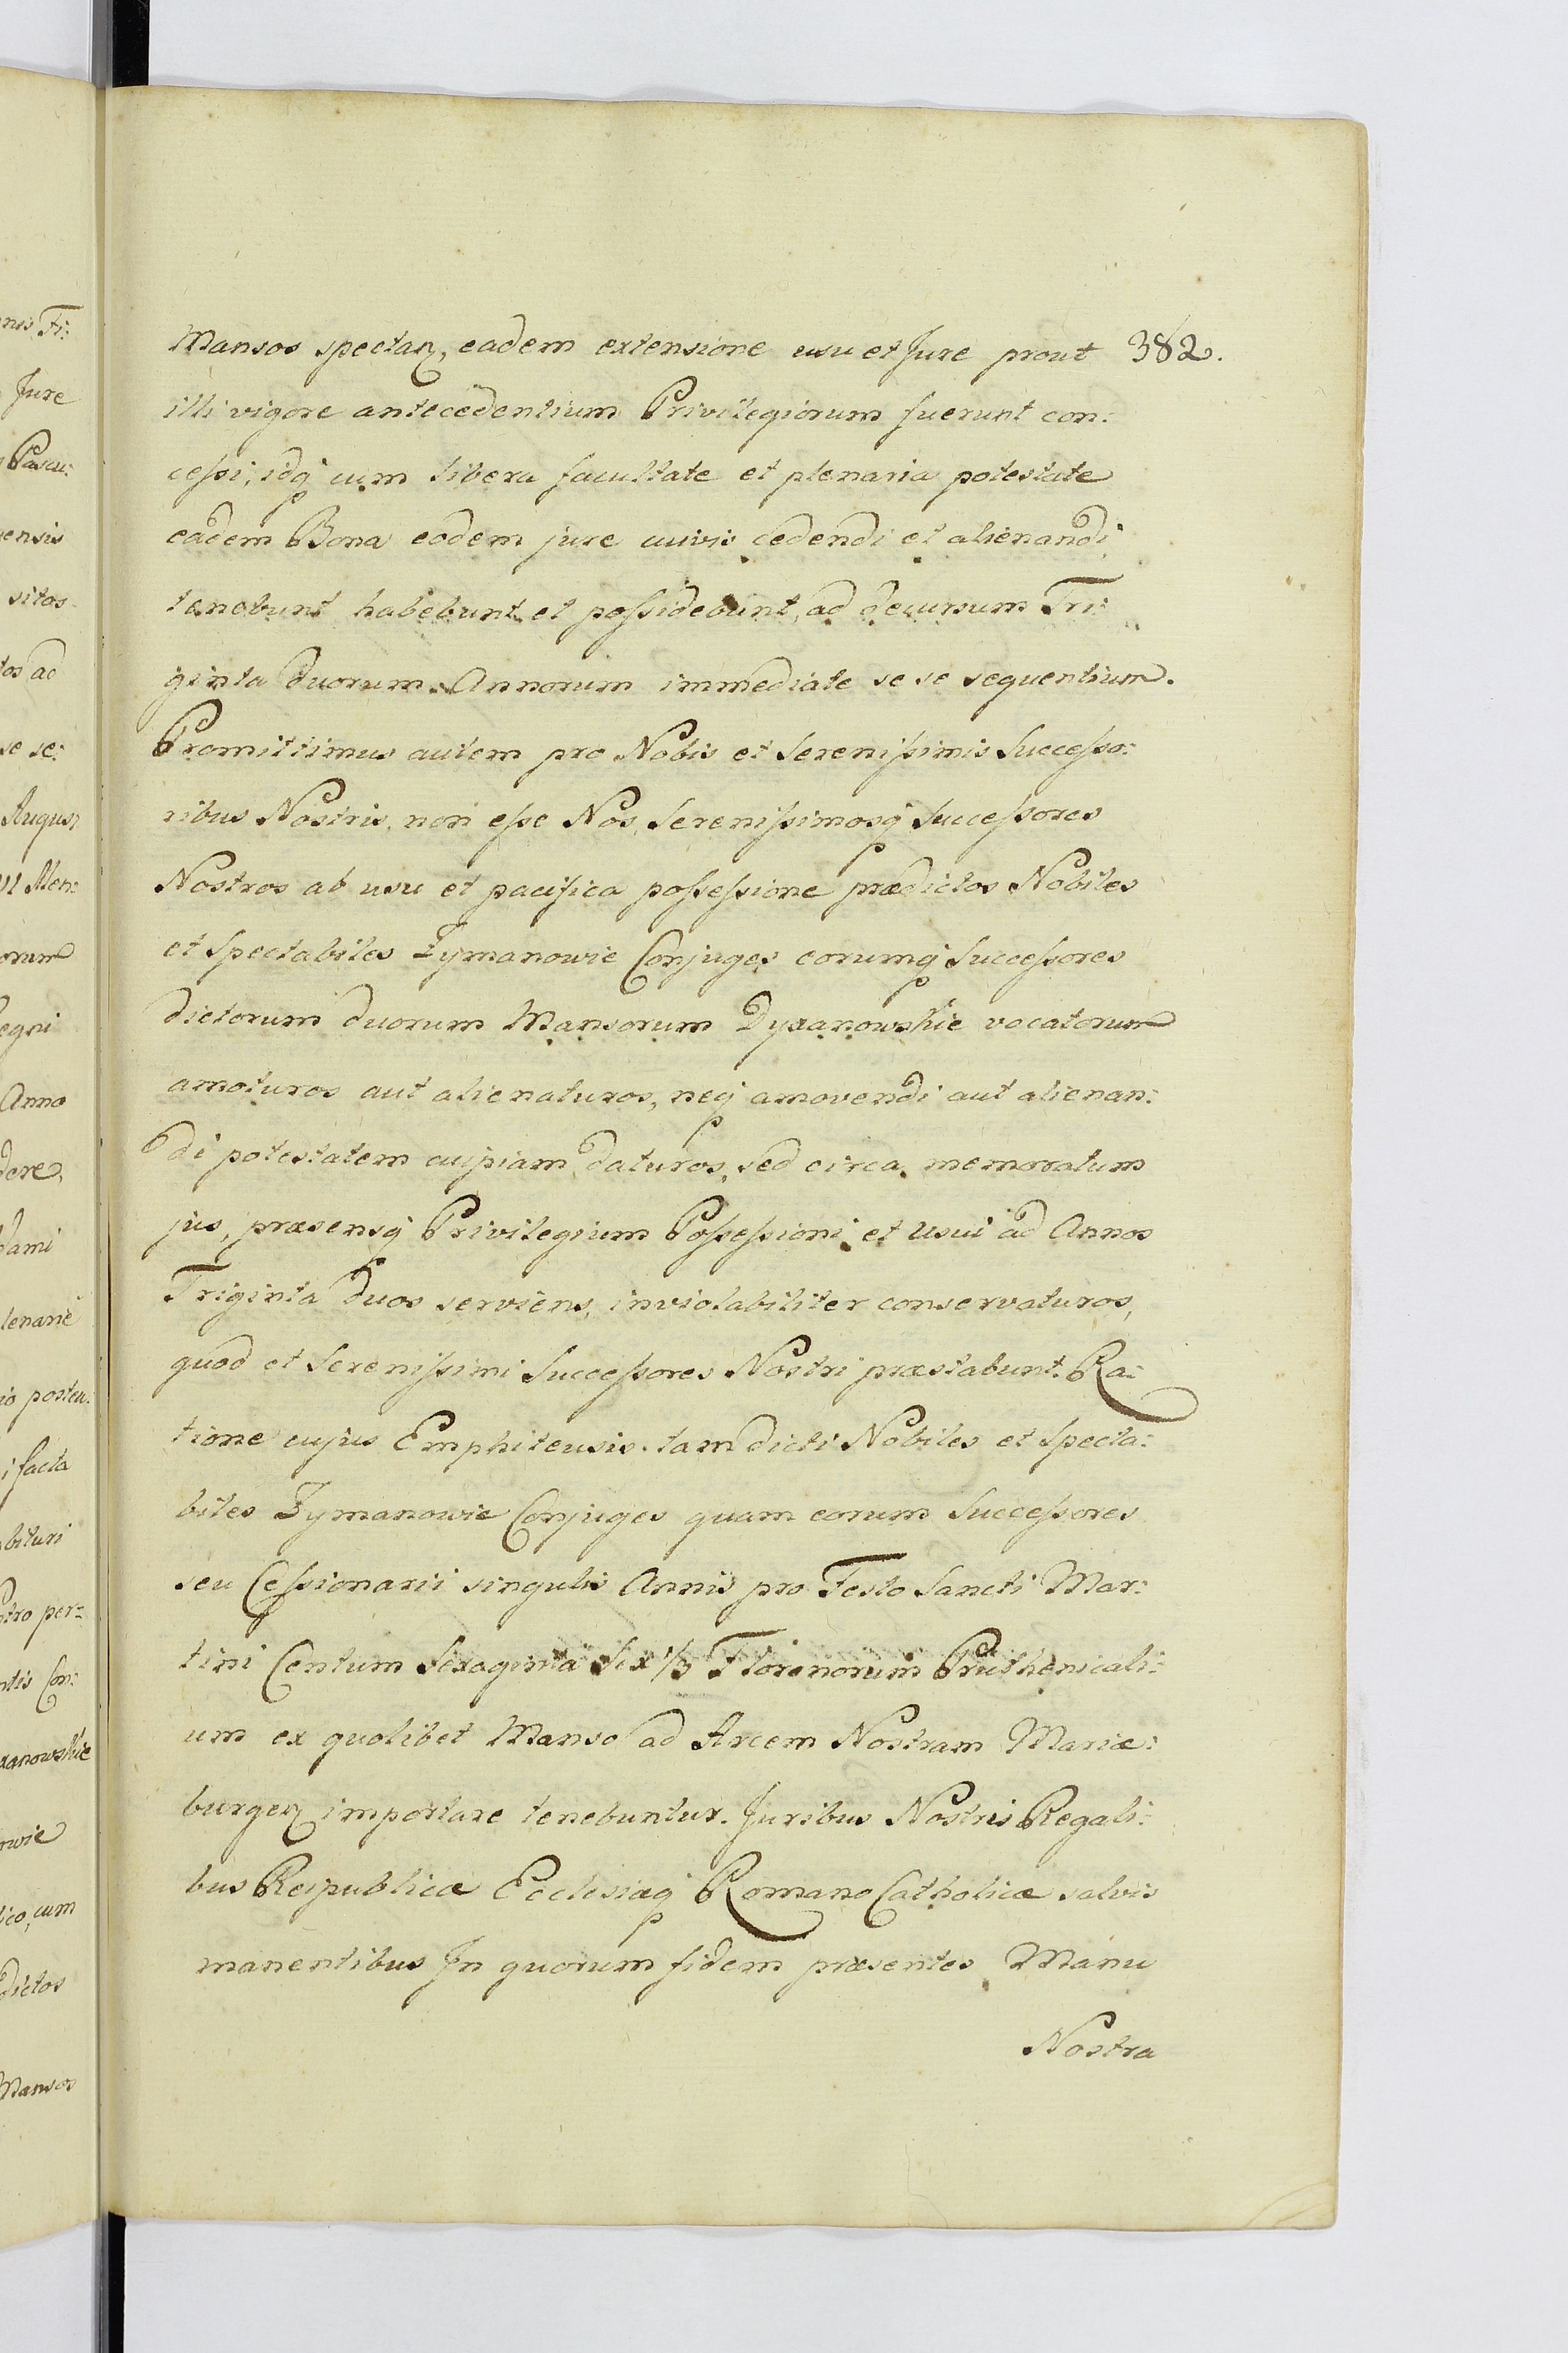 Mansos spectan, eadem extensione usu et Jure prout 382.
illi vigore antecedentium Privilegiorum fuerunt con:
cessi, idq cum libera facultate et plenaria potestate
eadem Bona eodem jure cuivis cedendi et alienandi,
tenebunt habebunt et possidebunt, ad decursum Tri:
ginta duorum Annorum immediate se se sequentium.
Promittimus autem pro Nobis et Serenissimis Successo:
ribus Nostris, non esse Nos, Serenissimosq Successores
Nostros ab usu et pacifica possessione prædictos Nobiles
et Spectabiles Zymanowie Conjuges eorumq Successores
dictorum duorum Mansorum Dyxanowskie vocatorum
amoturos aut alienaturos, neq amovendi aut alienan:
di potestatem cuipiam daturos, sed circa memoratum
jus, præsensq Privilegium Possessioni et Usui ad Annos
Triginta duos serviens, inviolabiliter conservaturos,
quod et Serenissimi Successores Nostri præstabunt. Ra:
tione cujus Emphiteusis tam dicti Nobiles et Specta:
biles Zymanowie Conjuges quam eorum Successores
seu Cessionarii singulis Annis pro Festo Sancti Mar:
tini Centum Sexaginta Sex 1/3 Florenorum Pruthenicali:
um ex quolibet Manso ad Arcem Nostram Mariæ:
burgen importare tenebuntur. Juribus Nostris Regali:
bus Reipublicæ Ecclesiæq Romano Catholicæ salvis
manentibus Jn quorum fidem præsentes Manu
Nostra
nis Fi:
Jure
Pascu:
ensis
sitos
tos ad
se se:
Augus
Men:
orum
egni
Anno
dere,
dami
lenarie
io posteu:
i facta
bituri
stro per:
ntis Con:
xanowskie
owie
lico, cum
dictos
Mansos